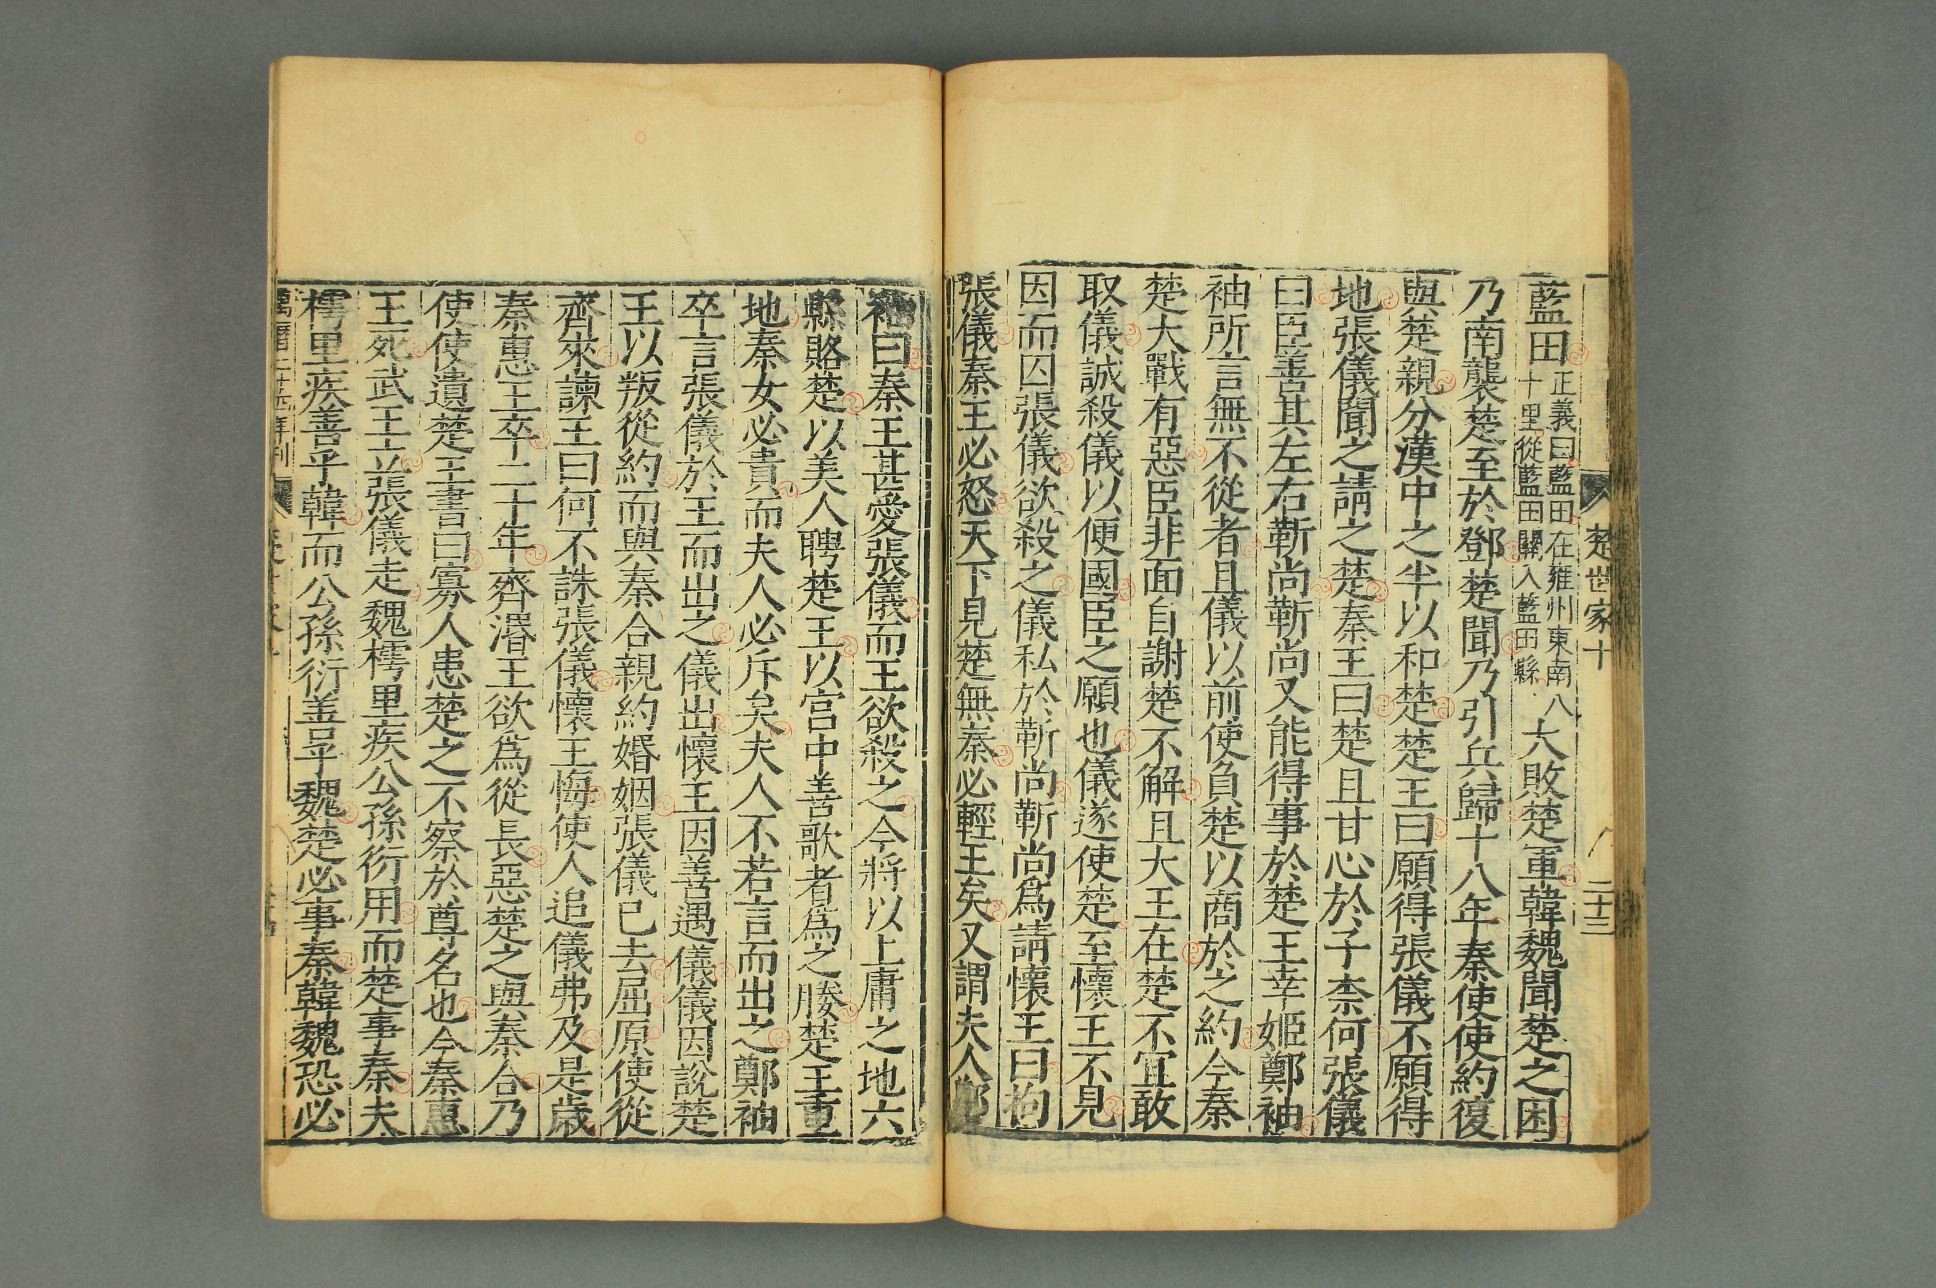 楚世家十
二十三
藍田正義曰藍田在雍州東南八十里從藍田關入藍田縣大敗楚軍韓魏聞楚之困
乃南襲楚至於鄧楚聞乃引兵歸十八年秦使使約復
與楚親分漢中之半以和楚楚王曰願得張儀不願得
地張儀聞之請之楚秦王曰楚且甘心於子柰何張儀
曰臣善其左右靳尚靳尚又能得事於楚王幸姬鄭袖
袖所言無不從者且儀以前使負楚以商於之約今秦
楚大戰有惡臣非面自謝楚不解且大王在楚不宜敢
取儀誠殺儀以便國臣之願也儀遂使楚至懷王不見
因而囚張儀欲殺之儀私於靳尚靳尚爲請懷王曰拘
張儀秦王必怒天下見楚無秦必輕王矣又謂夫人鄭
袖曰秦王甚愛張儀而王欲殺之今將以上庸之地六
縣賂楚以美人聘楚王以宫中善歌者爲之媵楚王重
地秦女必貴而夫人必斥矣夫人不若言而出之鄭袖
卒言張儀於王而出之儀出懷王因善遇儀儀因說楚
王以叛從約而與秦合親約婚姻張儀已去屈原使從
齊來諫王曰何不誅張儀懷王悔使人追儀弗及是歲
秦惠王卒二十年齊湣王欲爲從長惡楚之與秦合乃
使使遺楚王書曰寡人患楚之不察於尊名也今秦惠
王死武王立張儀走魏樗里疾公孫衍用而楚事秦夫
樗里疾善乎韓而公孫衍善乎魏楚必事秦韓魏恐必